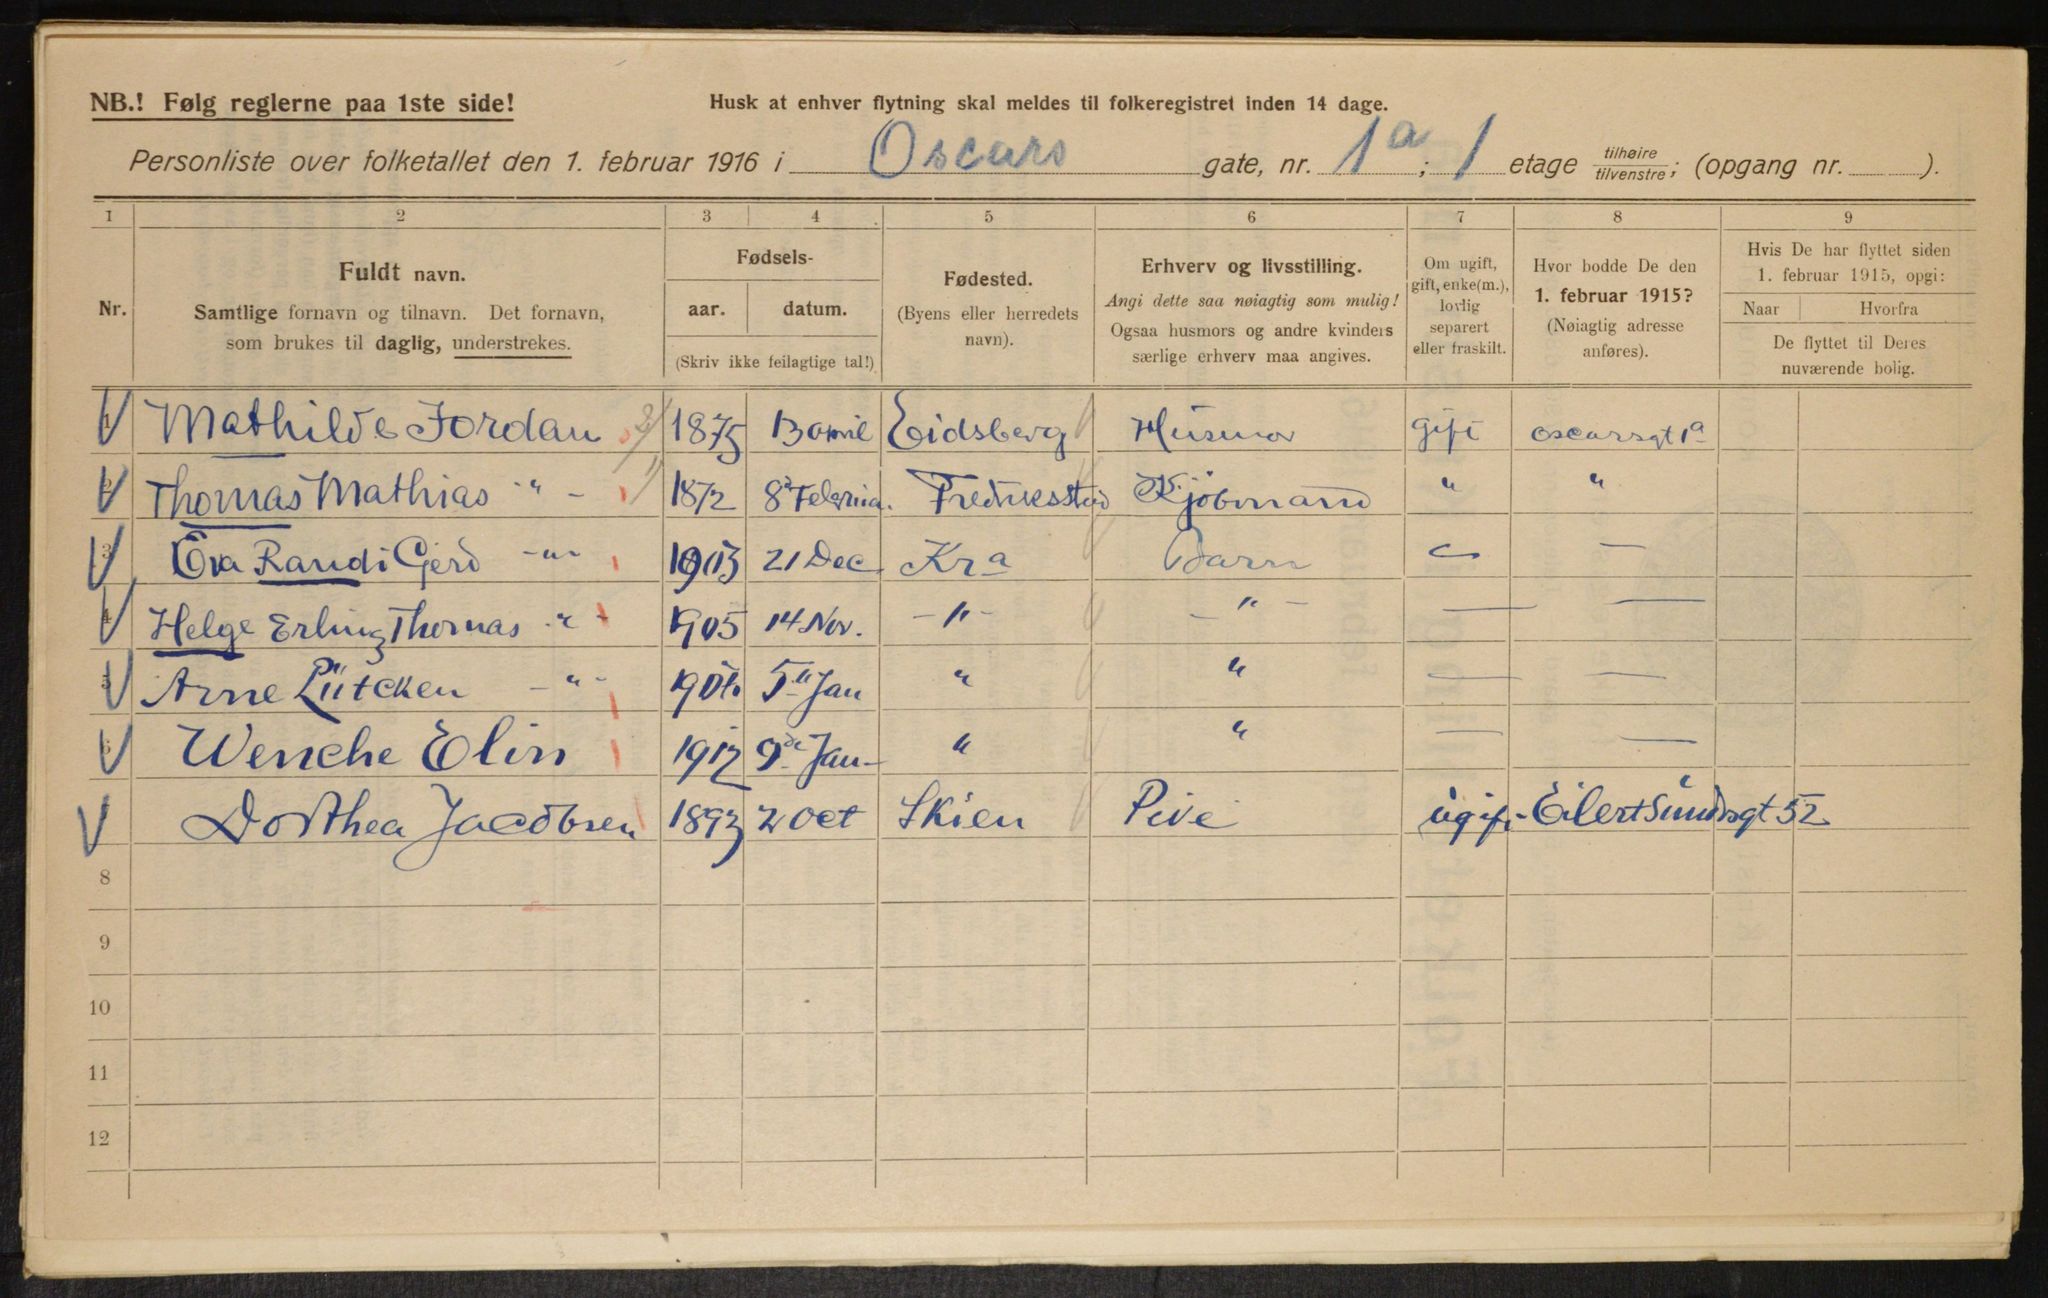 NB.! Følg reglerne paa 1ste side!
Husk at enhver flytning skal meldes til folkeregistret inden 14 dage.
Personliste over folketallet den 1. februar 1916 i Oscars gate, nr. 1a; 1 etage tilhøire/tilvenstre; (opgang nr. ).
1 2 3 4 5 6 7 8 9
Nr.
Fuldt navn.
Samtlige fornavn og tilnavn. Det fornavn,
som brukes til daglig, understrekes.
Fødsels-
aar. datum.
(Skriv ikke feilagtige tal!)
Fødested.
(Byens eller herredets
navn).
Erhverv og livsstilling.
Angi dette saa nøiagtig som mulig!
Ogsaa husmors og andre kvinders
særlige erhverv maa angives.
Om ugift,
gift, enke(m.),
lovlig
separert
eller fraskilt.
Hvor bodde De den
1. februar 1915?
(Nøiagtig adresse
anføres).
Hvis De har flyttet siden
1. februar 1915, opgi:
Naar Hvorfra
De flyttet til Deres
nuværende bolig.
1 Mathilde Jordan 1875 13 april Eidsberg Husmor gift oscarsgt 1a
2 Thomas Mathias " - 1872 8de Februa. Fredriksstad Kjøbmand " "
3 Eva Randi Gerd -"- 21 Dec Kra Barn — —
4 Helge Erling Thomas " - 1905 14 Nov. -"- -"- — —
5 Arne Lütcken -"- 5te Jan " " — —
6 Wenche Elin 1912 9de Jan " " — —
Dorthea Jacobsen 1893 2 Oct Skien Pike ugift Eilert Sundsgt 52
8
9
10
11
12